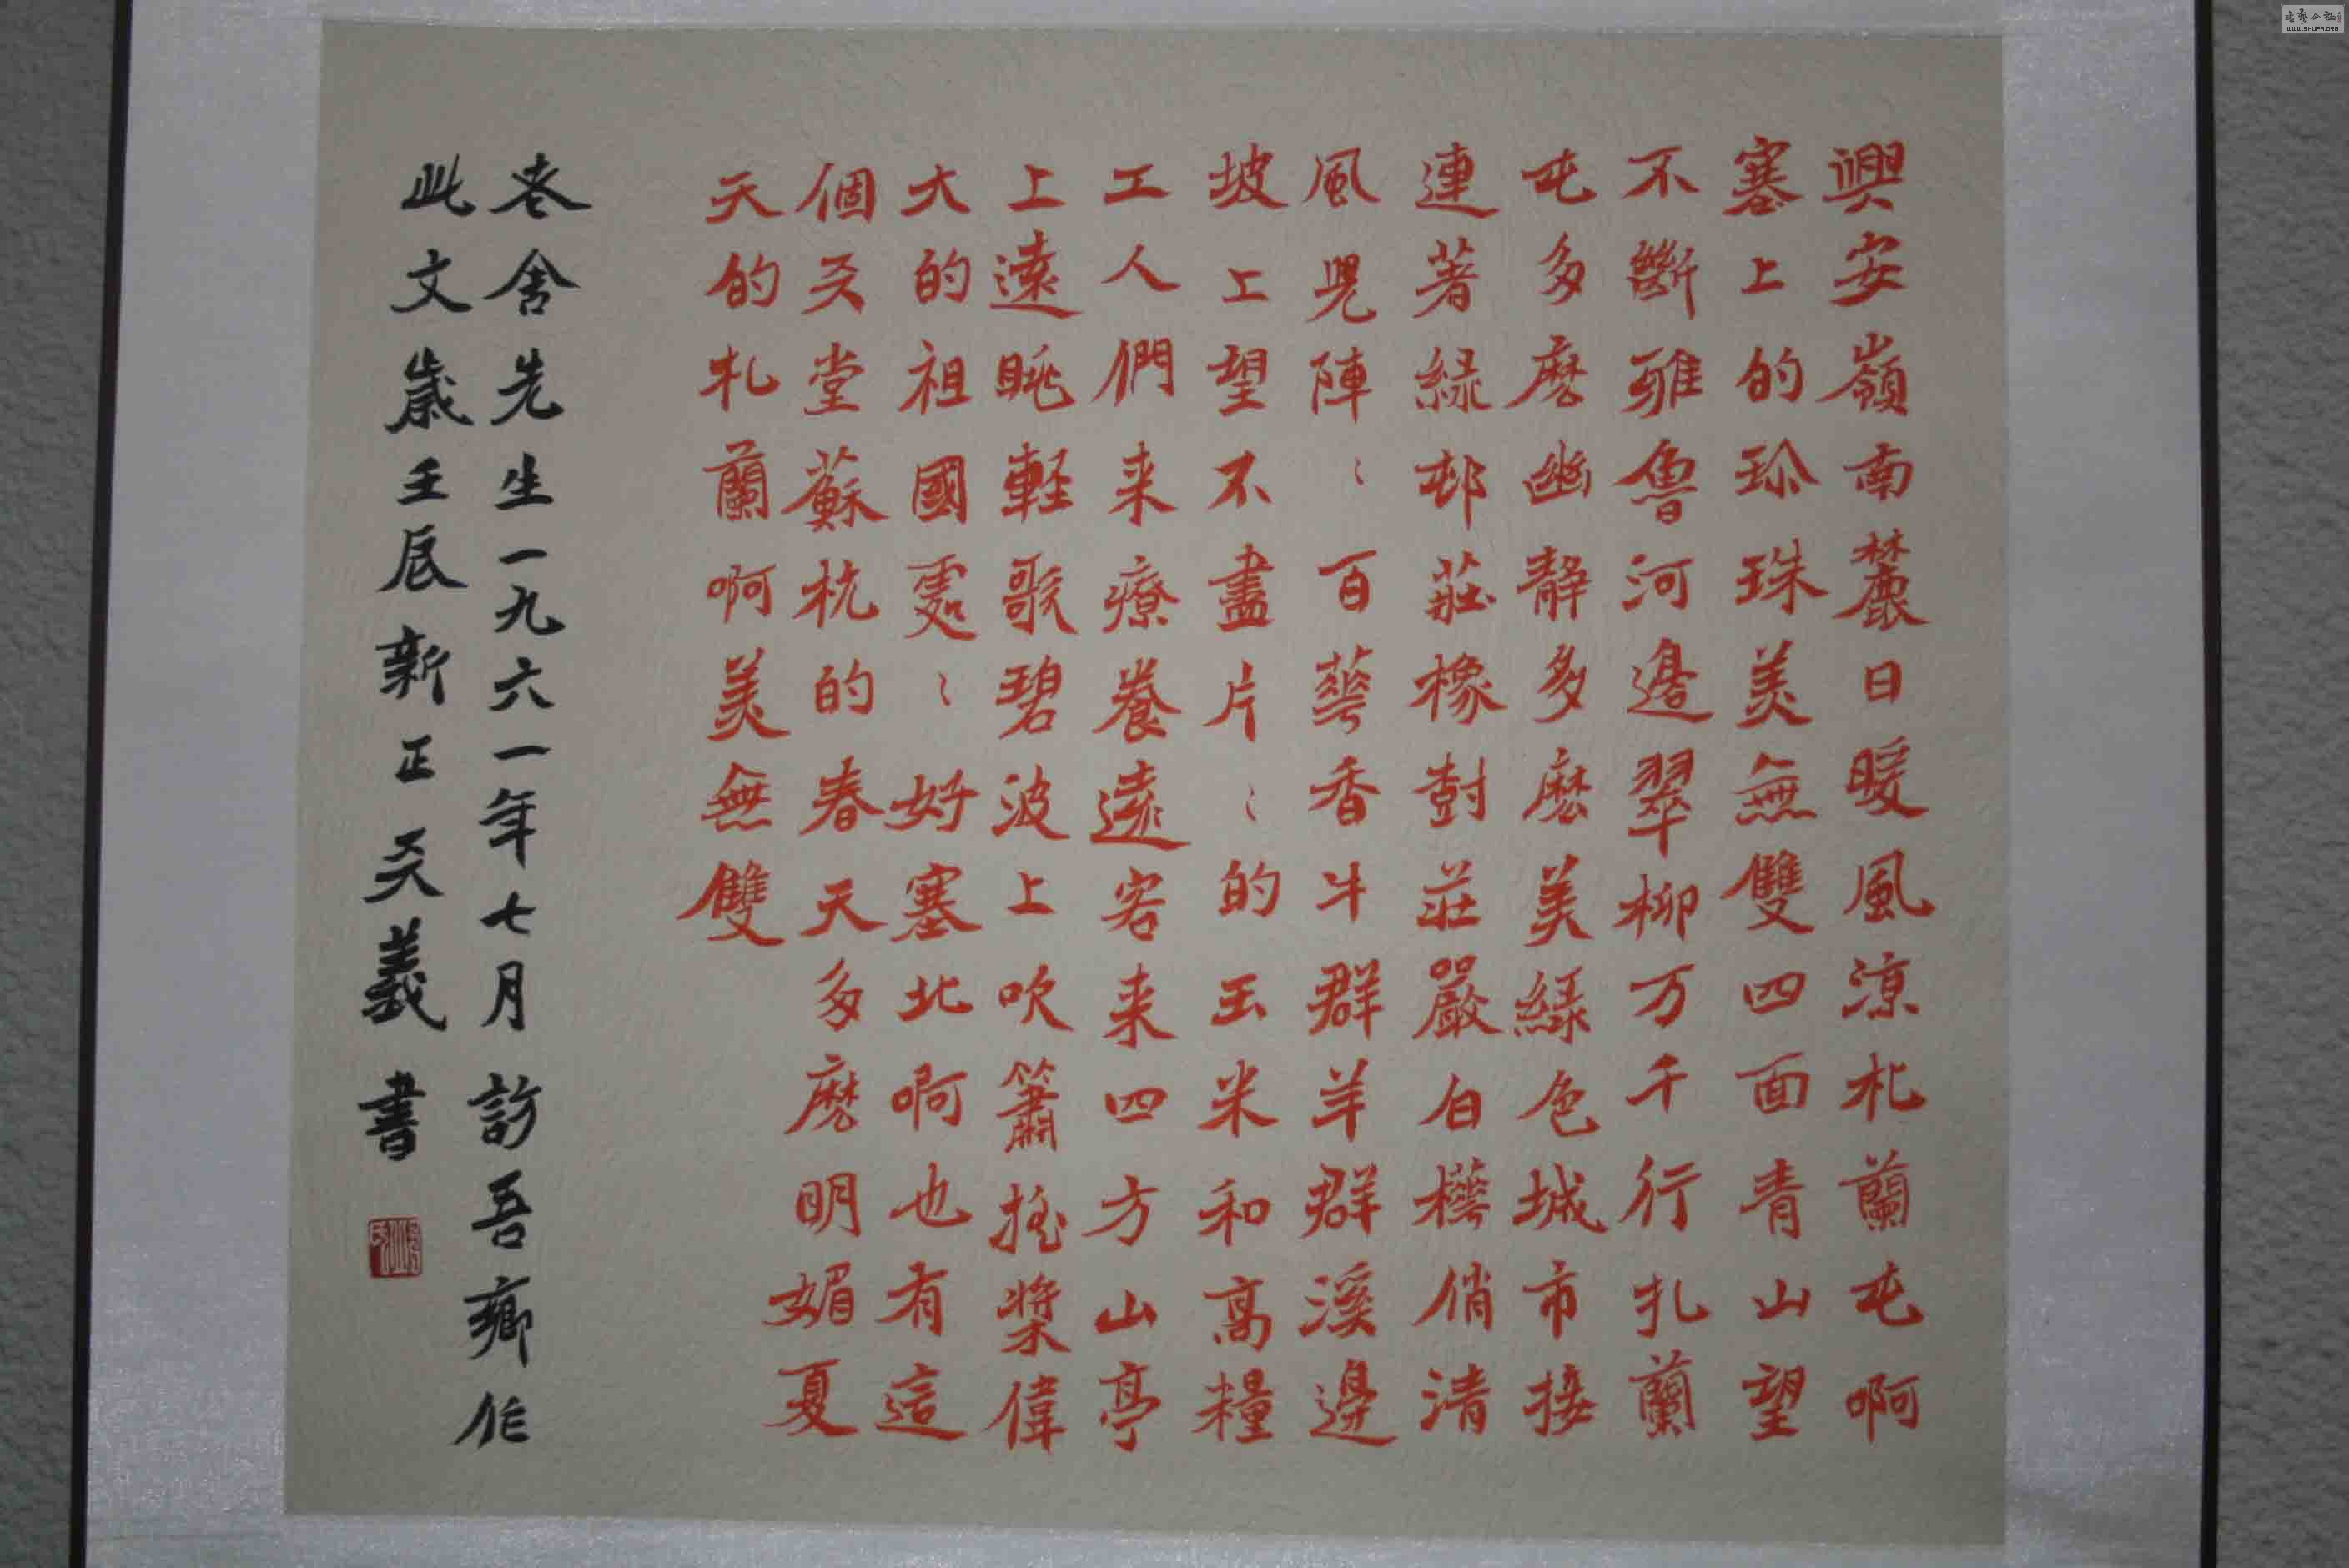 興安嶺南麓日暖風涼札蘭屯啊
塞上的珍珠美無雙四面青山望
不斷雅魯河邊翠柳万千行扎蘭
屯多麽幽静多麽美緑色城市接
連著緑邨莊橡樹莊嚴白樺俏清
風兒陣〻百華香牛群羊群溪邊
坡上望不盡片〻的玉米和高糧
工人們来療養遠客来四方山亭
上遠眺軽歌碧波上吹簫摇槳偉
大的祖國處〻好塞北啊也有這
個天堂蘇杭的春天多麽明媚夏
天的札蘭啊美無雙
老舍先生一九六一年七月訪吾鄉作
此文歲壬辰新正天義書
WWW.SHUFA.ORG